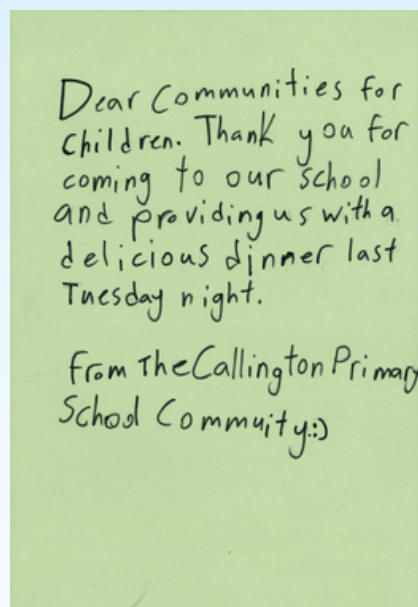 Dear Communities for
Children. Thank you for
coming to our school
and providing us with a
delicious dinner last
Tuesday night.
from The Callington Primary
School Commuity:)